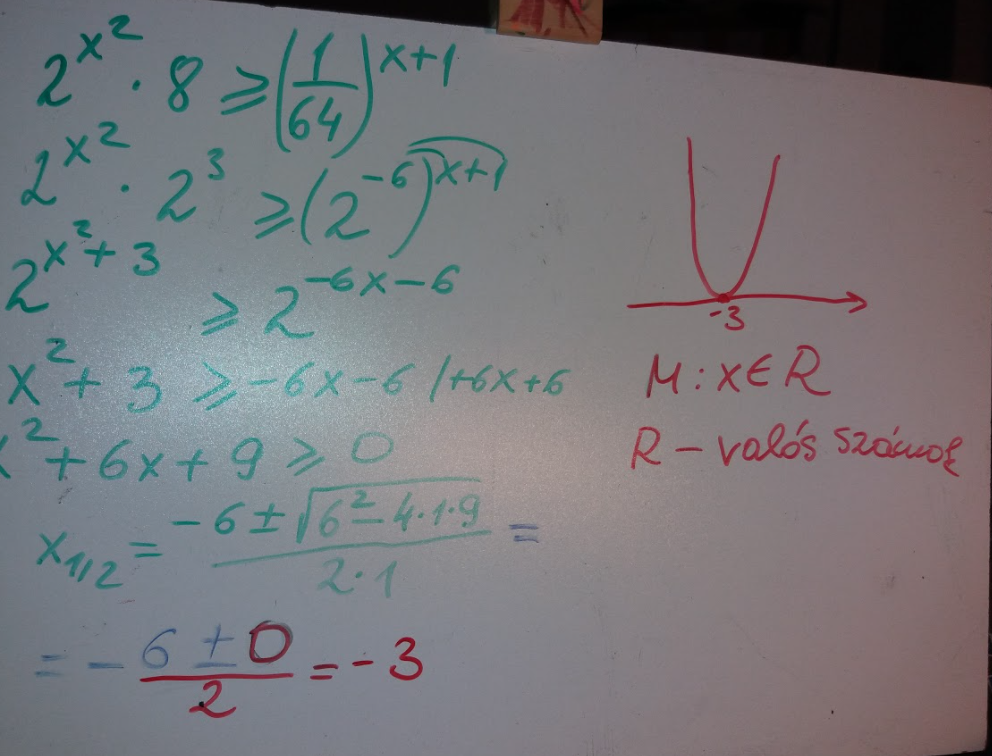 2^{x^2} · 8 ≥ (1/64)^{x+1}
2^{x^2} · 2^3 ≥ (2^{-6})^{x+1}
2^{x^2+3} ≥ 2^{-6x-6}
x^2 + 3 ≥ -6x - 6 /+6x+6
x^2 + 6x + 9 ≥ 0
x_{1/2} = (-6 ± √(6^2 - 4·1·9))/(2·1) =
= (-6 ± 0)/2 = -3
-3
M: x ∈ R
R - valós számok